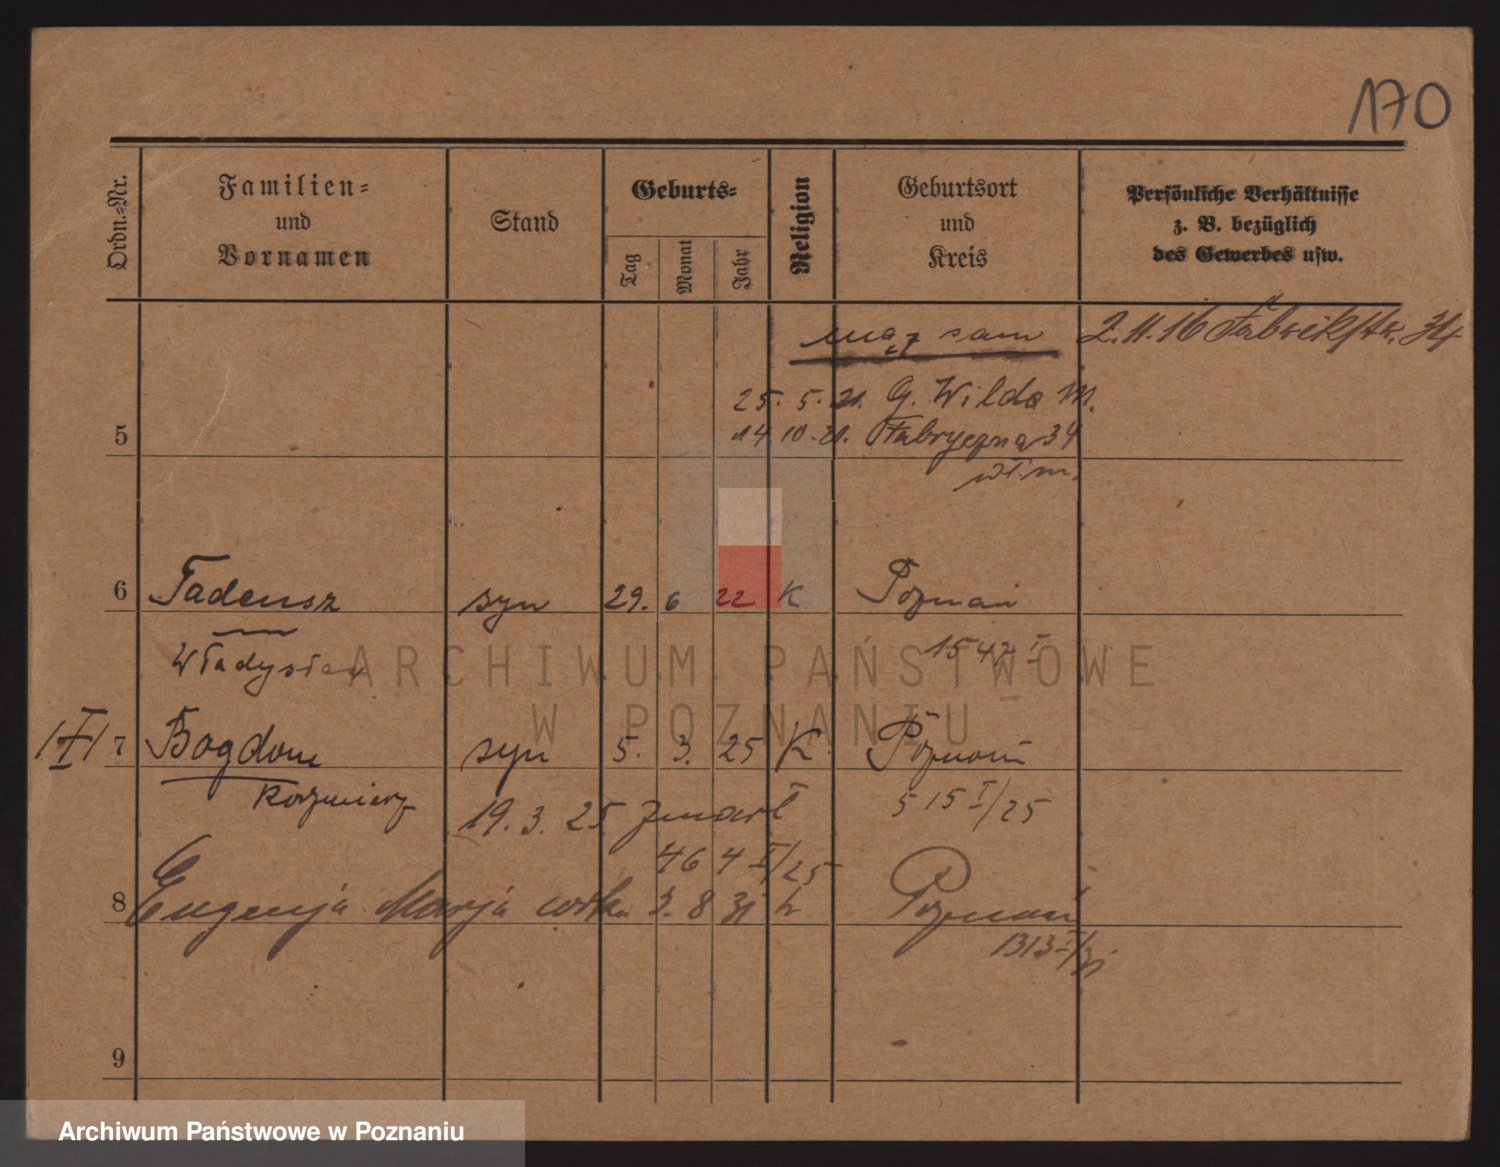 170
Ordn.=Nr.
Familien=
und
Vornamen
Stand
Geburts=
Tag
Monat
Jahr
Religion
Geburtsort
und
Kreis
Persönliche Verhältnisse
z. B. bezüglich
des Gewerbes usw.
mąż sam 2.11.16 Fabrikstr. 34
25. 5. 21. G. Wilda M.
14 10. 21. Fabryczna 34
5
wł. m.
6 Tadeusz syn 29. 6 22 K Poznań
Władysław 1542 I
ARCHIWUM PAŃSTWOWE
W POZNANIU
7 Bogdan syn 5. 3. 25 K Poznań
Kazimierz 515 I/25
19. 3. 25 zmarł
464 I/25
8 Eugenja Marja córka 3. 8 31 k Poznań
1313 I/31
9
Archiwum Państwowe w Poznaniu